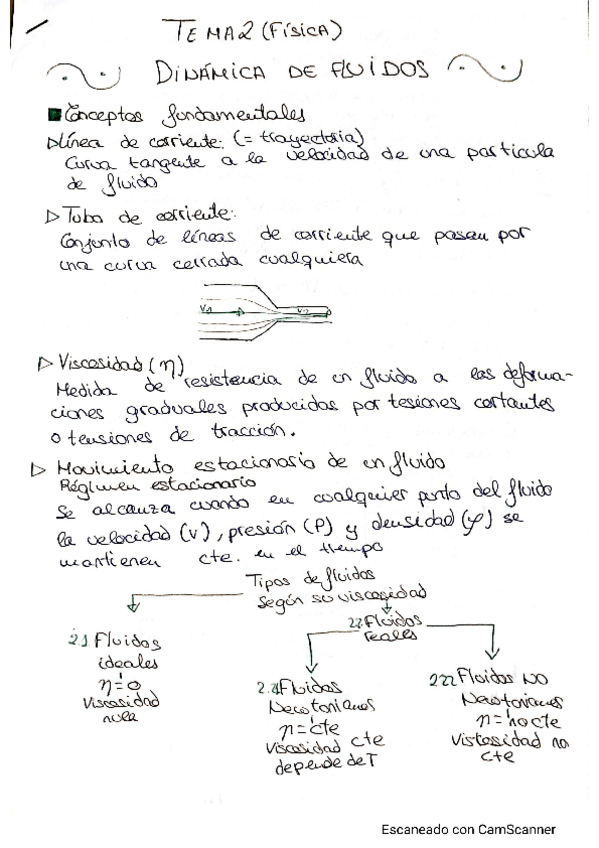 TEMA 2 (Física)
DINÁMICA DE FLUIDOS
Conceptos fundamentales
Línea de corriente: (= trayectoria)
Curva tangente a la velocidad de una partícula
de fluido
Tubo de corriente:
Conjunto de líneas de corriente que pasan por
una curva cerrada cualquiera
V1 V2
Viscosidad (η)
Medida de resistencia de un fluido a las deforma-
ciones graduales producidas por tesiones cortantes
o tensiones de tracción.
Movimiento estacionario de un fluido
Régimen estacionario
Se alcanza cuando en cualquier punto del fluido
la velocidad (v), presión (P) y densidad (φ) se
mantienen cte. en el tiempo
Tipos de fluidos
según su viscosidad
2.1 Fluidos
ideales
η=0
Viscosidad
nula
2.2 Fluidos
reales
2.2.1 Fluidos
Newtonianos
η=cte
Viscosidad cte
depende de T
2.2.2 Fluidos NO
Newtonianos
η=no cte
Vistosidad no
cte
Escaneado con CamScanner